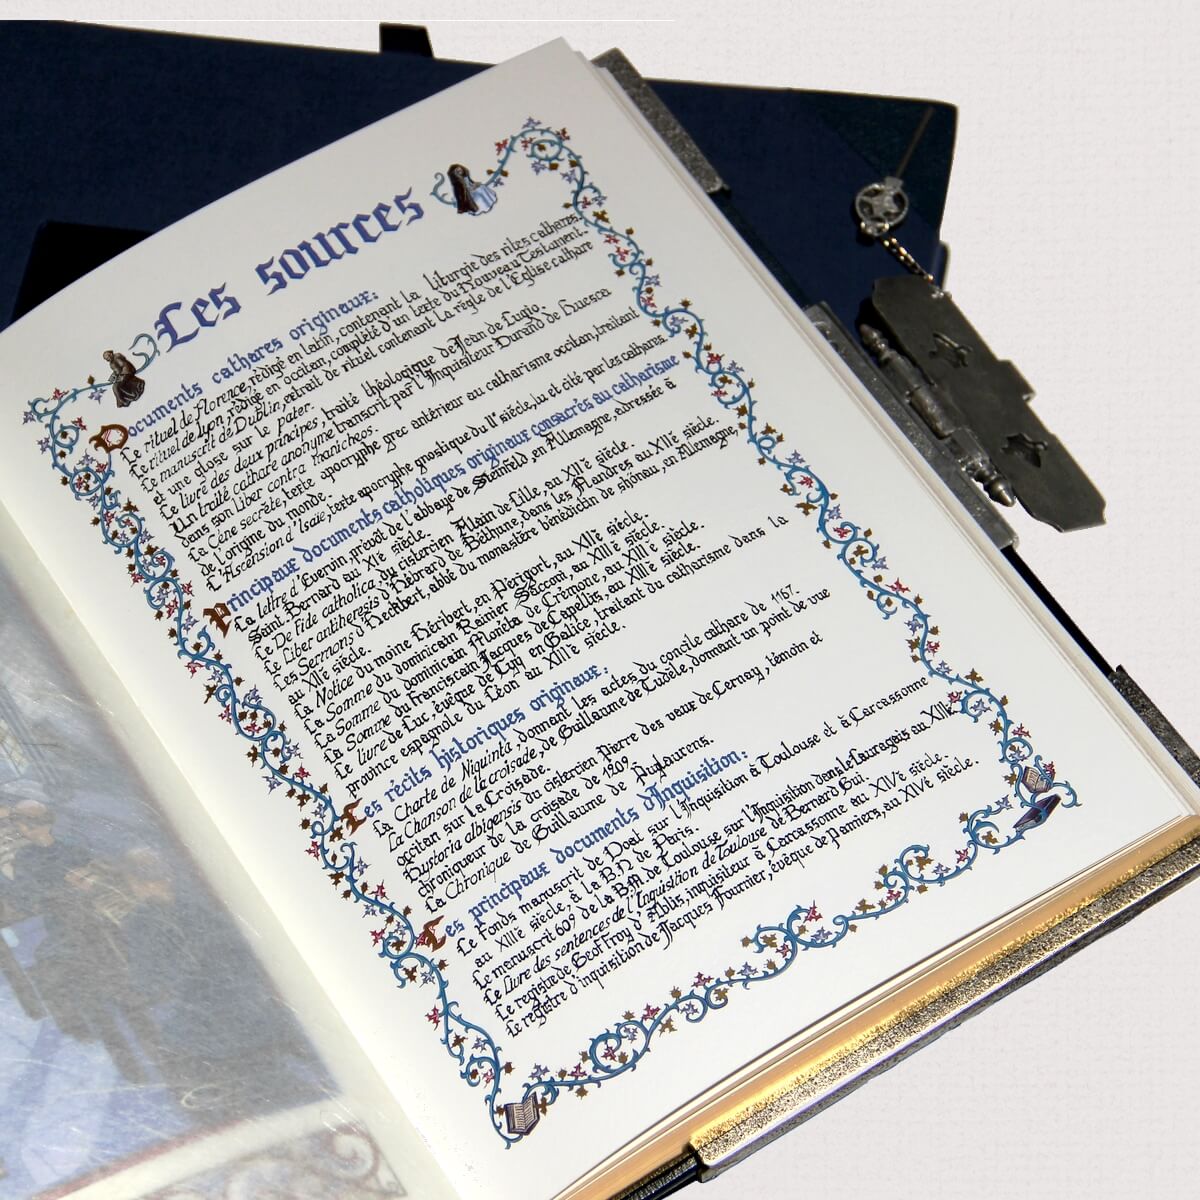 Les sources
Documents cathares originaux:
Le rituel de florence, rédigé en latin, contenant la liturgie des rites cathares.
Le rituel de Lyon, rédigé en occitan, complété d'un texte du Nouveau Testament.
Le manuscrit de Dublin, extrait de rituel contenant La règle de l'Eglise cathare
et une glose sur le pater.
Le livre des deux principes, traité théologique de Jean de Lugio.
Un traité cathare anonyme transcrit par l'Inquisiteur Durand de huesca
dans son liber contra manicheos.
La Cène secrète, texte apocryphe grec antérieur au catharisme occitan, traitant
de l'origine du monde.
L'Ascension d'Isaïe, texte apocryphe gnostique du IIe siècle, lu et cité par les cathares.
Principaux documents catholiques originaux consacrés au catharisme
La lettre d'Evervin, prévôt de l'abbaye de Steinfeld, en Allemagne, adressée à
Saint Bernard au XIè siècle.
Le De Fide catholica, du cistercien Alain de Lille, au XIIè siècle.
Le Liber antiheresis d'Hébrard de Béthune, dans les Flandres au XIIè siècle.
Les Sermons d'Heckbert, abbé du monastère bénédictin de shönau, en Allemagne,
au XIIè siècle.
La Notice du moine héribert, en Périgort, au XIIè siècle.
La Somme du dominicain Rainier Saccon, au XIIIè siècle.
La Somme du dominicain Monéta de Crémone, au XIIIè siècle.
La Somme du Franciscain Jacques de Capellis, au XIIIè siècle.
Le livre de Luc, évêque de Tuy en Galice, traitant du catharisme dans la
province espagnole du Léon au XIIIè siècle.
Les récits historiques originaux:
La Charte de Niquinta, donnant les actes du concile cathare de 1167.
La Chanson de la croisade, de Guillaume de Tudèle, donnant un point de vue
occitan sur La Croisade.
Hystoria albigensis du cistercien Pierre des vaux de Cernay, témoin et
chroniqueur de la croisade de 1209.
La Chronique de Guillaume de Puylaurens.
Les principaux documents d'Inquisition:
Le Fonds manuscrit de Doat sur l'Inquisition à Toulouse et à Carcassonne
au XIIIè siècle, à la B.N de Paris.
Le manuscrit 609 de la B.M de Toulouse sur l'Inquisition dans le Lauragais au XIIIè
Le Livre des sentences de l'Inquisition de Toulouse de Bernard Gui.
Le registre de Geoffroy d'Ablis, inquisiteur à Carcassonne au XIVè siècle.
Le registre d'inquisition de Jacques Fournier, évêque de Pamiers, au XIVè siècle.